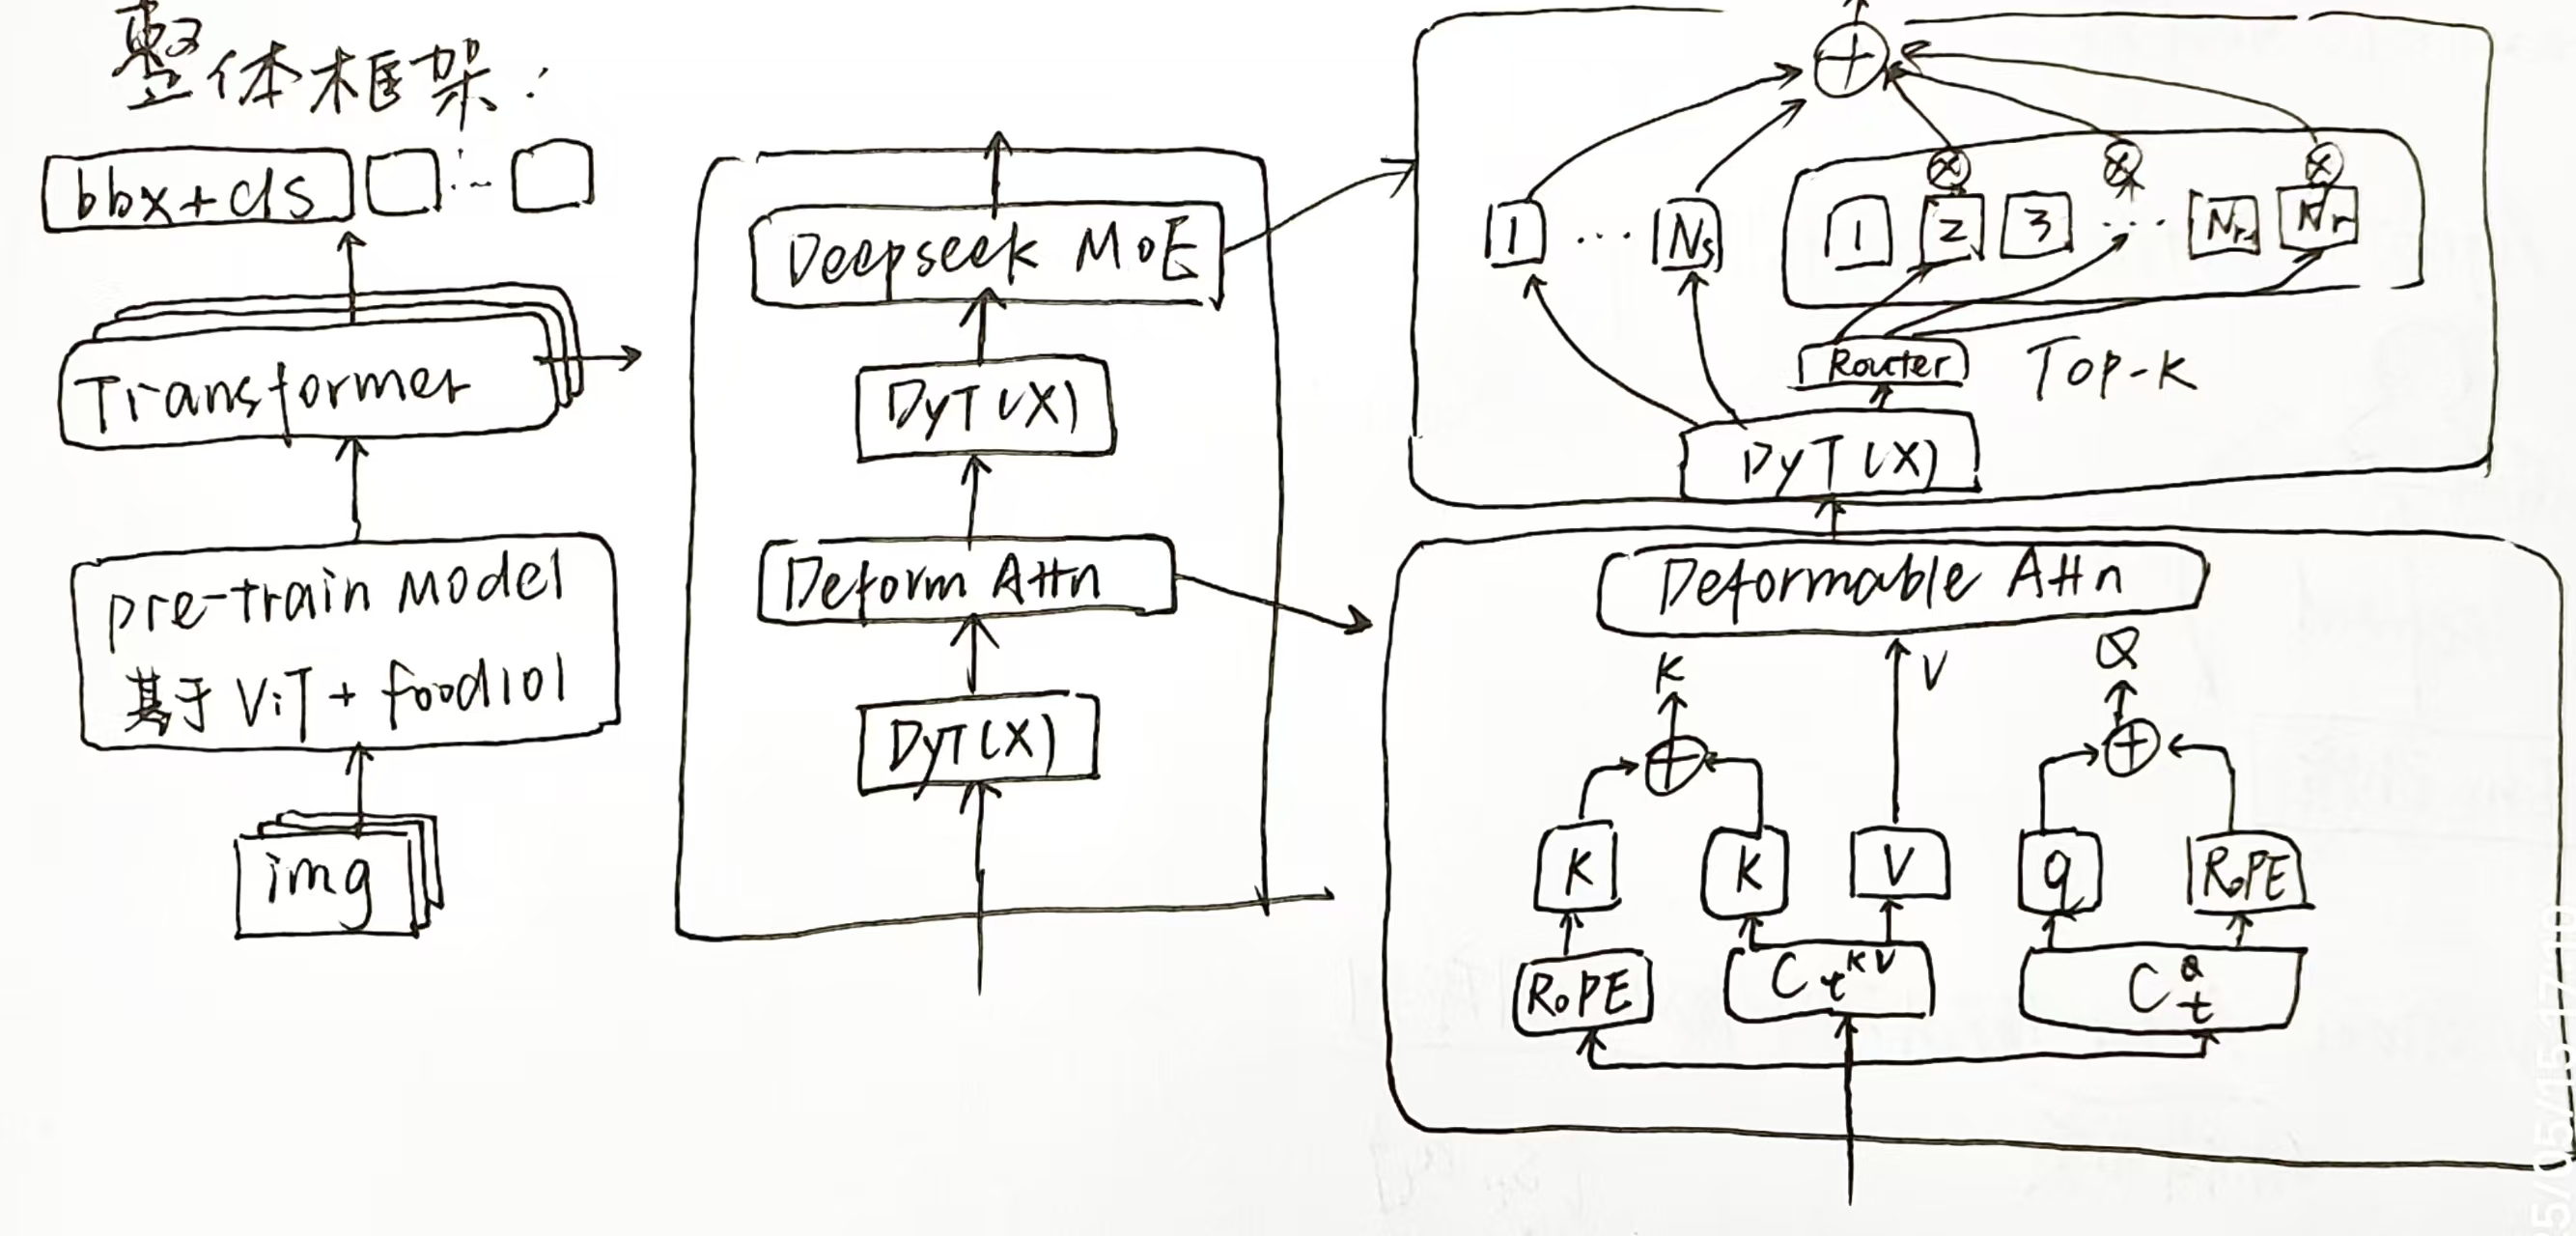 整体框架:
bbx+cls
...
Transformer
pre-train Model
基于 ViT + food101
img
Deepseek MoE
DyT(X)
Deform Attn
DyT(X)
1 ... Ns
1 2 3 ... Nr Nr
Router Top-K
DyT(X)
Deformable Attn
K V Q
K K V q RoPE
RoPE Ct^KV Ct^Q